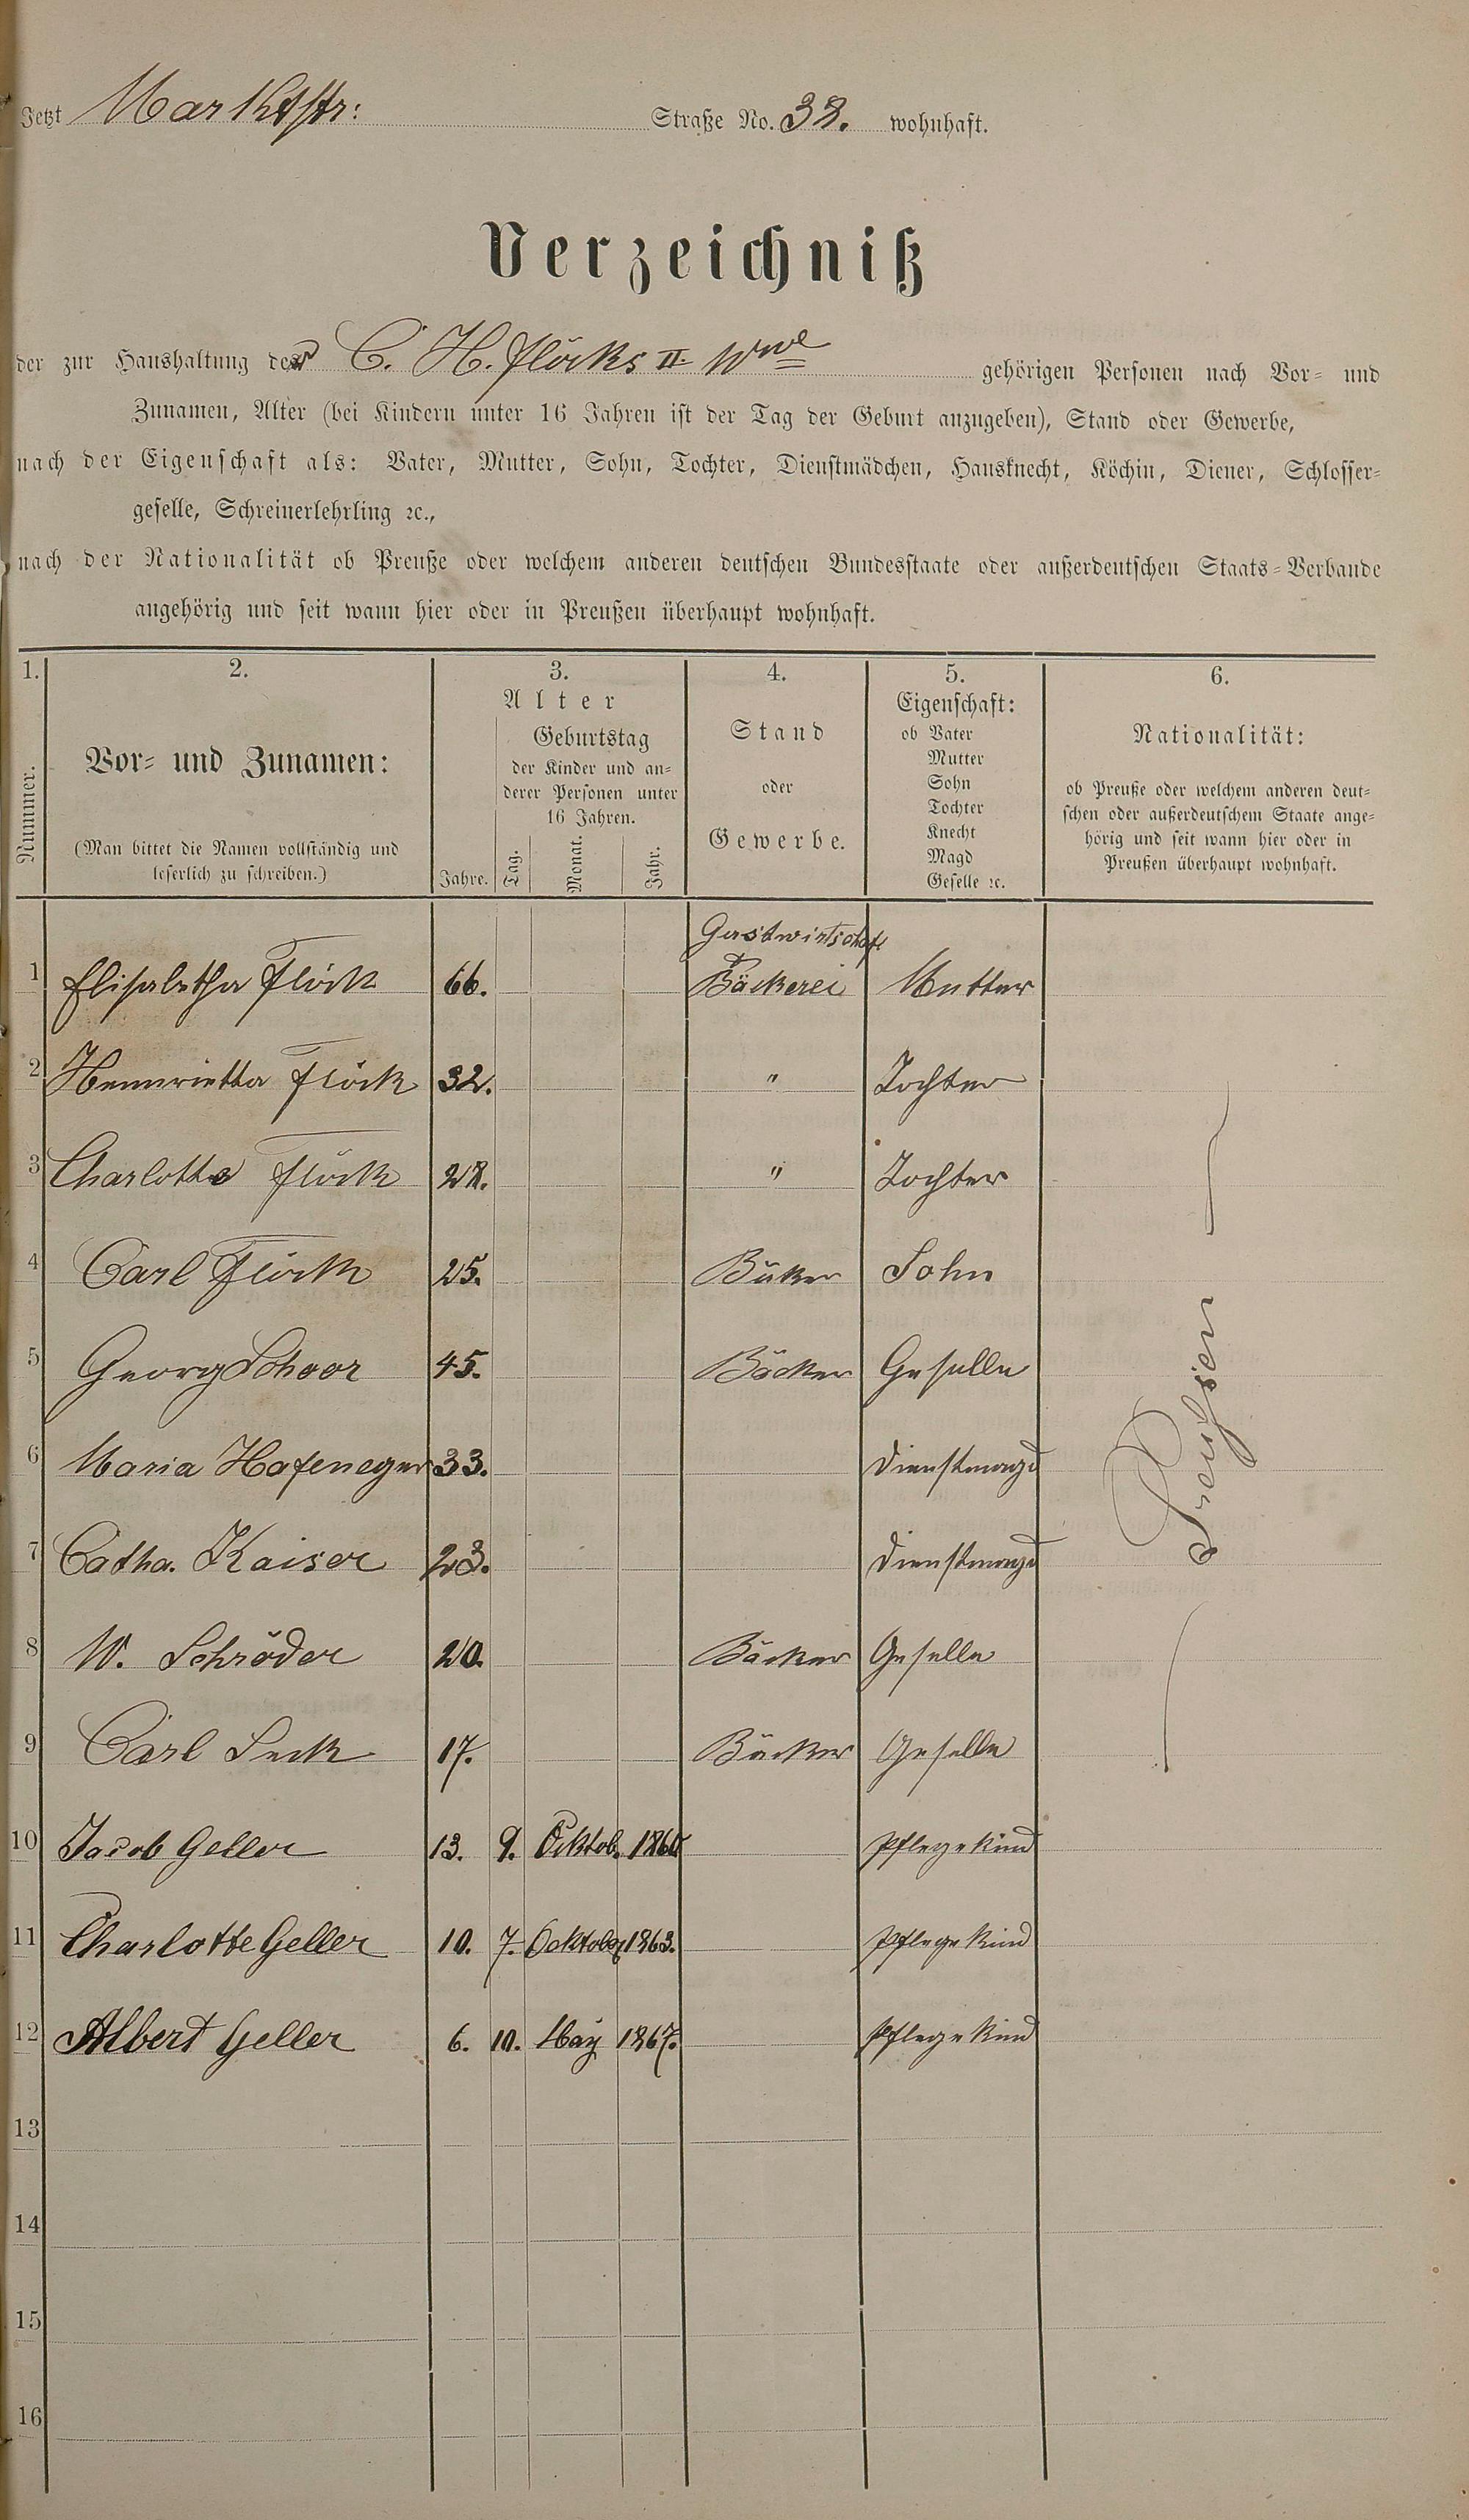 Jetzt Marktstr: Straße No. 38. wohnhaft.
Verzeichniß
der zur Haushaltung der C. H. Flöcks II. Wwe gehörigen Personen nach Vor- und
Zunamen, Alter (bei Kindern unter 16 Jahren ist der Tag der Geburt anzugeben), Stand oder Gewerbe,
nach der Eigenschaft als: Vater, Mutter, Sohn, Tochter, Dienstmädchen, Hausknecht, Köchin, Diener, Schlosser-
geselle, Schreinerlehrling ꝛc.,
nach der Nationalität ob Preuße oder welchem anderen deutschen Bundesstaate oder außerdeutschen Staats-Verbande
angehörig und seit wann hier oder in Preußen überhaupt wohnhaft.
1. 2. 3. 4. 5. 6.
Nummer.
Vor- und Zunamen:
(Man bittet die Namen vollständig und
leserlich zu schreiben.)
Alter
Jahre.
Geburtstag
der Kinder und an-
derer Personen unter
16 Jahren.
Tag. Monat. Jahr.
Stand
oder
Gewerbe.
Eigenschaft:
ob Vater
Mutter
Sohn
Tochter
Knecht
Magd
Geselle ꝛc.
Nationalität:
ob Preuße oder welchem anderen deut-
schen oder außerdeutschem Staate ange-
hörig und seit wann hier oder in
Preußen überhaupt wohnhaft.
Gastwirtschaft
1 Elisabetha Flöck 66. Bäckerei Mutter
2 Hennrietta Flöck 32. " Tochter
3 Charlotte Flöck 28. " Tochter
4 Carl Flöck 25. Bäker Sohn
5 Georg Schoor 45. Bäcker Geselle
6 Maria Hafeneger 33. Dienstmagd
7 Catha. Kaiser 23. Dienstmagd
8 W. Schröder 20. Bäcker Geselle
9 Carl Seck 17. Bäcker Geselle
Preußen
10 Jacob Geller 13. 9. Ocktob. 1860 Pflegekind
11 Charlotte Geller 10. 7. Ocktober 1863. Pflegekind
12 Albert Geller 6. 10. May 1867. Pflegekind
13
14
15
16